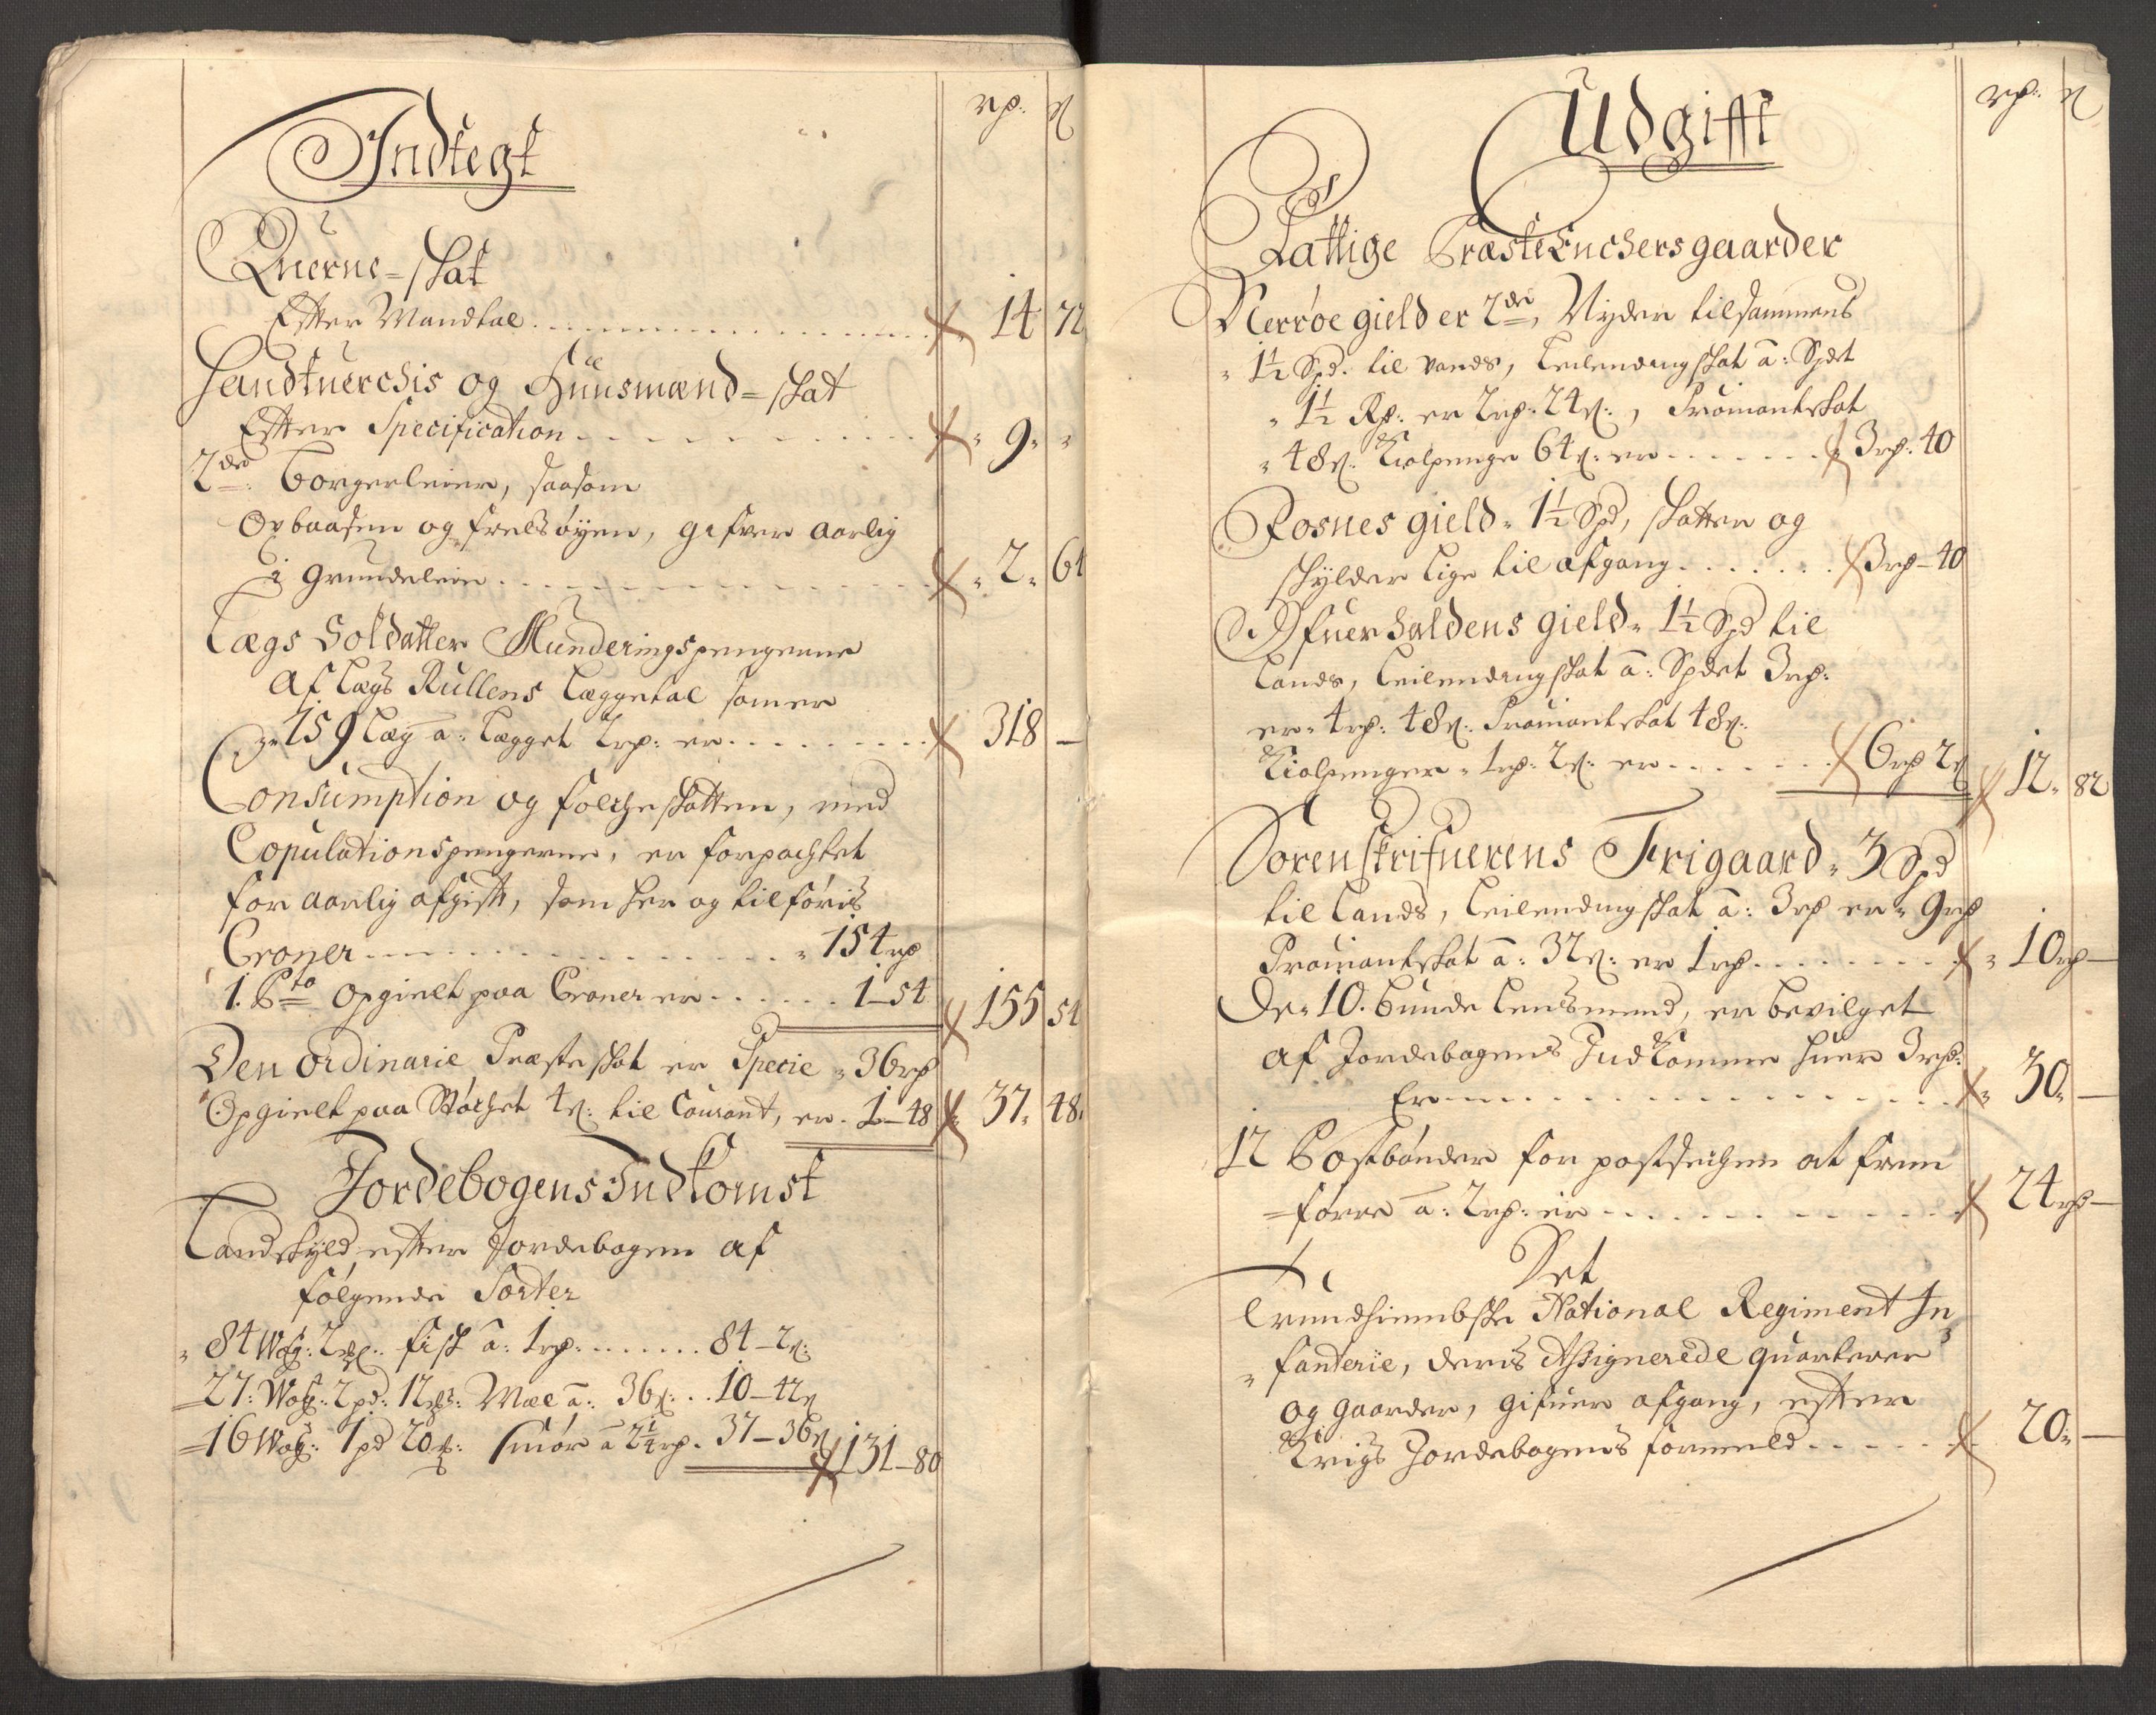 Indtegt
rp: ß
Querne-skat
Efter Mandtal . . . 14 72
Handtuerchis og Huusmænd-skat
Efter Specification . . . 9" "
2de Borgerleier, saasom
Oxbaasen og frelsøyen, gifver aarlig
i grundeleie . . . 2" 64
Lægs Soldatter Munderingspengerne
af Lægs Rullens Læggetal som er
159 Læg a: Lægget 2rp: er . . . 318 –
Consumption og folcheskatten, med
Copulationspengerne, er forpachtet
for aarlig afgift, som her og tilføris
Croner . . . 154 rp
1. P:to opgielt paa Croner er . . . 1–54 155 54
Den ordinarie Præsteskat er Specie " 36rp
Opgielt paa Støchet 4ß: til Courant, er . 1–48 37" 48"
Jordebogens Indkomst
Landskyld efter Jordebogen af
følgende Sorter
" 84 Wog: 2 fisk a: 1rp . . . 84–2ß:
27: Wog: 2pd: 12 Mæl a: 36ß: . . 10–42ß
16 Wog: 1pd 20 Smør a 2¼rp . 37–36ß 131–80
Udgifft
rp: ß
Fattige PræsteEnchersgaarder
Nerrøe gield er 2de, Nyder tilsammens
" 1½ Spd. til vands, Leilendingskat a: Spdet
" 1½ Rp: er 2rp: 24ß:, Proviantskat
" 48ß. Kiolpenge 64ß: er . . . 3rp: 40
Fosnes gield " 1½ Spd, skatter og
skylder lige til afgang . . . 3rp–40
Ofuerhaldens gield " 1½ Spd til
Lands, Leilendingskat a: Spdet 3rp:
er " 4rp: 48ß. Proviantskat 48ß:
Kiolpenger " 1rp: 2ß: er . . . 6rp 2ß 12" 82
Sorenskrifuerens Frigaard " 3 Spd
til Lands, Leilendingskat a: 3rp er " 9rp
Proviantskat a: 32ß: er 1rp . . . 10rp –
De 10. Bunde Lensmend, er bevilget
af Jordebogens Indkomme huer 3rp:
Er . . . 30" –
12 Postbønder for postsechen at frem
=førre a: 2rp: er . . . 24rp –
Det
Trundhiembske National Regiment In,
" fanterie, deris Assignerede quarterer
og gaarder, gifuer afgang, efter
Krigs Jordebogens formeld . . . 20" –